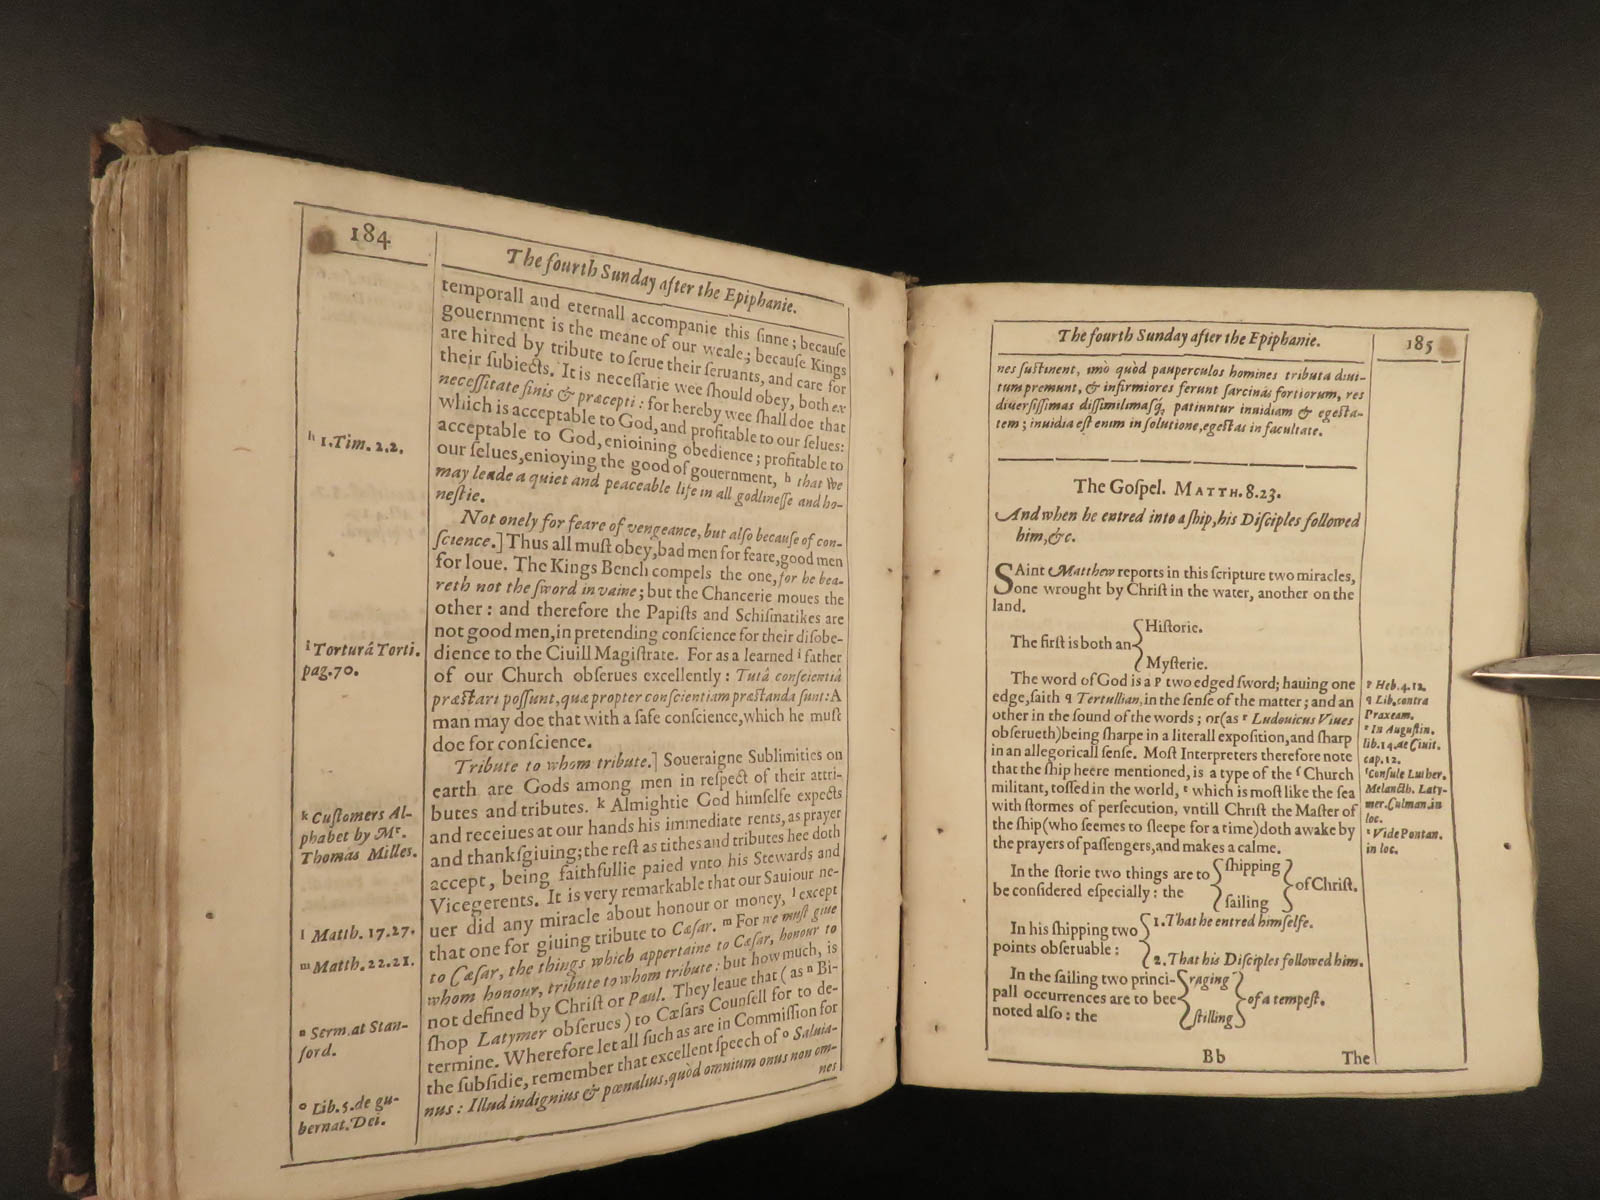 184
The fourth Sunday after the Epiphanie.
temporall and eternall accompanie this ſinne; becauſe
gouernment is the meane of our weale; becauſe Kings
are hired by tribute to ſerue their ſeruants, and care for
their ſubiects. It is neceſſarie wee ſhould obey, both ex
neceſſitate finis & præcepti: for hereby wee ſhall doe that
which is acceptable to God, and profitable to our ſelues:
acceptable to God, enioining obedience; profitable to
our ſelues, enioying the good of gouernment, h that we
may leade a quiet and peaceable life in all godlineſſe and ho-
neſtie.
Not onely for feare of vengeance, but alſo becauſe of con-
ſcience.] Thus all muſt obey, bad men for feare, good men
for loue. The Kings Bench compels the one, for he bea-
reth not the ſword in vaine; but the Chancerie moues the
other: and therefore the Papiſts and Schiſmatikes are
not good men, in pretending conſcience for their diſobe-
dience to the Ciuill Magiſtrate. For as a learned i father
of our Church obſerues excellently: Tutâ conſcientiâ
præſtari poſſunt, quæ propter conſcientiam præſtanda ſunt: A
man may doe that with a ſafe conſcience, which he muſt
doe for conſcience.
Tribute to whom tribute.] Soueraigne Sublimities on
earth are Gods among men in reſpect of their attri-
butes and tributes. k Almightie God himſelfe expects
and receiues at our hands his immediate rents, as prayer
and thankſgiuing; the reſt as tithes and tributes hee doth
accept, being faithfullie paied vnto his Stewards and
Vicegerents. It is very remarkable that our Sauiour ne-
uer did any miracle about honour or money, l except
that one for giuing tribute to Cæſar. m For we muſt giue
to Cæſar, the things which appertaine to Cæſar, honour to
whom honour, tribute to whom tribute: but how much, is
not defined by Chriſt or Paul. They leaue that (as n Bi-
ſhop Latymer obſerues) to Cæſars Counſell for to de-
termine. Wherefore let all ſuch as are in Commiſſion for
the ſubſidie, remember that excellent ſpeech of o Saluia-
nus: Illud indignius & pœnalius, quòd omnium onus non om-
nes
h 1. Tim. 2.2.
i Torturâ Torti.
pag. 70.
k Cuſtomers Al-
phabet by Mr.
Thomas Milles.
l Matth. 17.27.
m Matth. 22.21.
n Serm. at Stan-
ford.
o Lib. 5. de gu-
bernat. Dei.
The fourth Sunday after the Epiphanie.
185
nes ſuſtinent, imò quòd pauperculos homines tributa diui-
tum premunt, & infirmiores ferunt ſarcinas fortiorum, res
diuerſiſſimas diſſimilimaſq; patiuntur inuidiam & egeſta-
tem; inuidia eſt enim in ſolutione, egeſtas in facultate.
The Goſpel. MATTH. 8.23.
And when he entred into a ſhip, his Diſciples followed
him, &c.
SAint Matthew reports in this ſcripture two miracles,
one wrought by Chriſt in the water, another on the
land.
The firſt is both an { Hiſtorie.
Myſterie.
The word of God is a p two edged ſword; hauing one
edge, ſaith q Tertullian, in the ſenſe of the matter; and an
other in the ſound of the words; or (as r Ludouicus Viues
obſerueth) being ſharpe in a literall expoſition, and ſharp
in an allegoricall ſenſe. Moſt Interpreters therefore note
that the ſhip heere mentioned, is a type of the ſ Church
militant, toſſed in the world, t which is moſt like the ſea
with ſtormes of perſecution, vntill Chriſt the Maſter of
the ſhip (who ſeemes to ſleepe for a time) doth awake by
the prayers of paſſengers, and makes a calme.
In the ſtorie two things are to { ſhipping } of Chriſt.
be conſidered eſpecially: the ſailing
In his ſhipping two { 1. That he entred himſelfe.
points obſeruable: 2. That his Diſciples followed him.
In the ſailing two princi- { raging } of a tempeſt.
pall occurrences are to bee
noted alſo: the ſtilling
Bb
The
p Heb. 4.12.
q Lib. contra
Praxeam.
r In Auguſtin.
lib. 14. de Ciuit.
cap. 12.
ſ Conſule Luther.
Melancth. Laty-
mer. Culman. in
loc.
t Vide Pontan.
in loc.